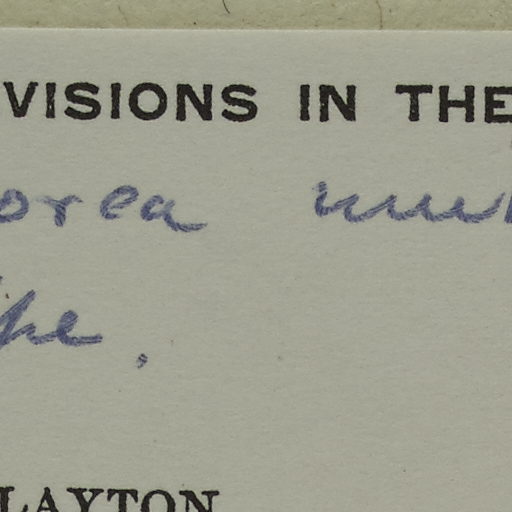 VISIONS IN THE
orea
pe.
LAYTON